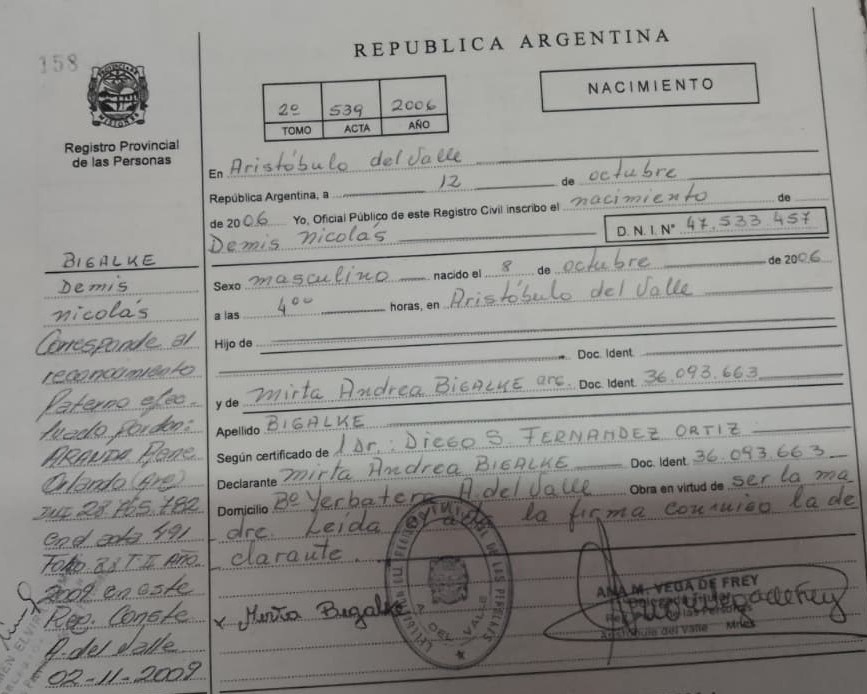 158
REPUBLICA ARGENTINA
NACIMIENTO
2º 539 2006
TOMO ACTA AÑO
Registro Provincial
de las Personas
En Aristóbulo del Valle
República Argentina, a 12 de octubre
de 2006 Yo, Oficial Público de este Registro Civil inscribo el nacimiento de
Demis nicolás D.N.I.Nº 47.533.457
Sexo masculino nacido el 8 de octubre de 2006
a las 4 00 horas, en Aristóbulo del Valle
Hijo de
Doc. Ident.
y de Mirta Andrea BIGALKE arg. Doc. Ident. 36.093.663
Apellido BIGALKE
Según certificado de Dr.: Diego S. FERNANDEZ ORTIZ
Declarante Mirta Andrea BIGALKE Doc. Ident. 36.093.663
Domicilio Bº Yerbatera A. del Valle Obra en virtud de ser la ma
dre. Leída el acta la firma conmigo la de
clarante.
Mirta Bigalke
ANA M. VEGA DE FREY
Aristóbulo del Valle Mnes
BIGALKE
Demis
nicolás
Corresponde al
reconocimiento
Paterno efec
tuado por don:
ARANDA Rene
Orlando (Arg)
DNI 28
en el acta 491
Folio T II Año
2009 en este
Reg. Conste
A. del Valle
02-11-2009